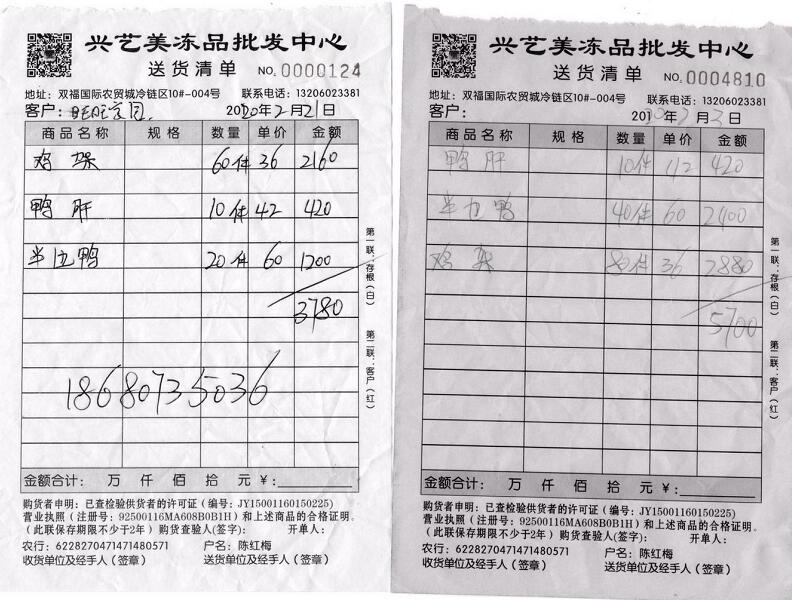 兴艺美冻品批发中心
送货清单 NO. 0000124
地址：双福国际农贸城冷链区10#-004号 联系电话：13206023381
客户： 2020年2月21日
商品名称 规格 数量 单价 金额
鸡架 60件 36 2160
鸭肝 10件 42 420
半边鸭 20件 60 1200
3780
18680735036
金额合计： 万 仟 佰 拾 元 ¥：
购货者申明：已查检验供货者的许可证（编号：JY15001160150225）
营业执照（注册号：92500116MA608B0B1H）和上述商品的合格证明。
（此联保存期限不少于2年）购货查验人(签字)： 开单人：
农行：6228270471471480571 户名：陈红梅
收货单位及经手人（签章） 送货单位及经手人（签章）
第一联：存根（白） 第二联：客户（红）
兴艺美冻品批发中心
送货清单 NO. 0004810
地址：双福国际农贸城冷链区10#-004号 联系电话：13206023381
客户： 2020年 月3日
商品名称 规格 数量 单价 金额
鸭肝 10件 42 420
半边鸭 40件 60 2400
鸡架 80件 36 2880
5700
金额合计： 万 仟 佰 拾 元 ¥：
购货者申明：已查检验供货者的许可证（编号：JY15001160150225）
营业执照（注册号：92500116MA608B0B1H）和上述商品的合格证明。
（此联保存期限不少于2年）购货查验人(签字)： 开单人：
农行：6228270471471480571 户名：陈红梅
收货单位及经手人（签章） 送货单位及经手人（签章）
第一联：存根（白） 第二联：客户（红）